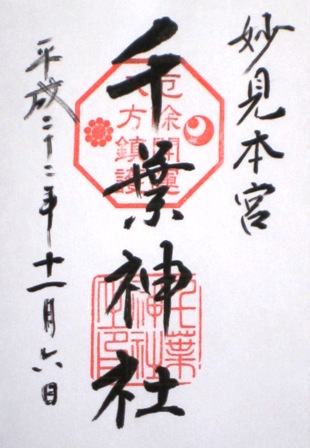 妙見本宮
千葉神社
平成二十二年十一月六日
厄除開運
八方鎮護